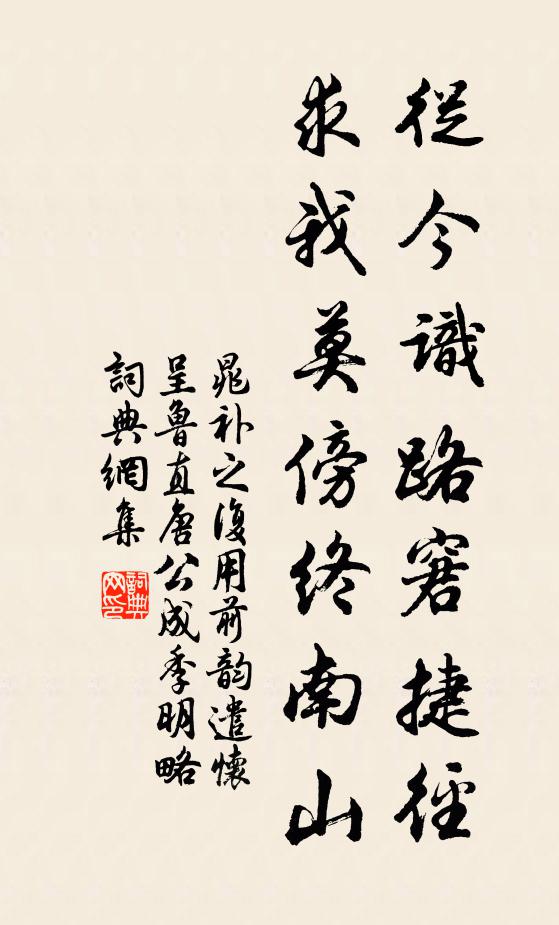 從今識路窘捷徑
求我莫傍終南山
晁补之復用前韵遣懷
呈魯直唐公成季明略
詞典網集
詞典网印